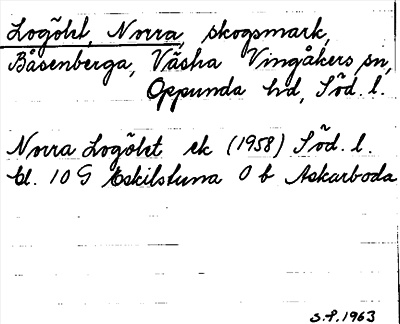 Logölet, Norra, skogsmark,
Båsenberga, Västra Vingåkers sn,
Oppunda hd, Söd. l.
Norra Logölet ek (1958) Söd. l.
bl. 10 G Eskilstuna 0 b Askarboda
S.P. 1963